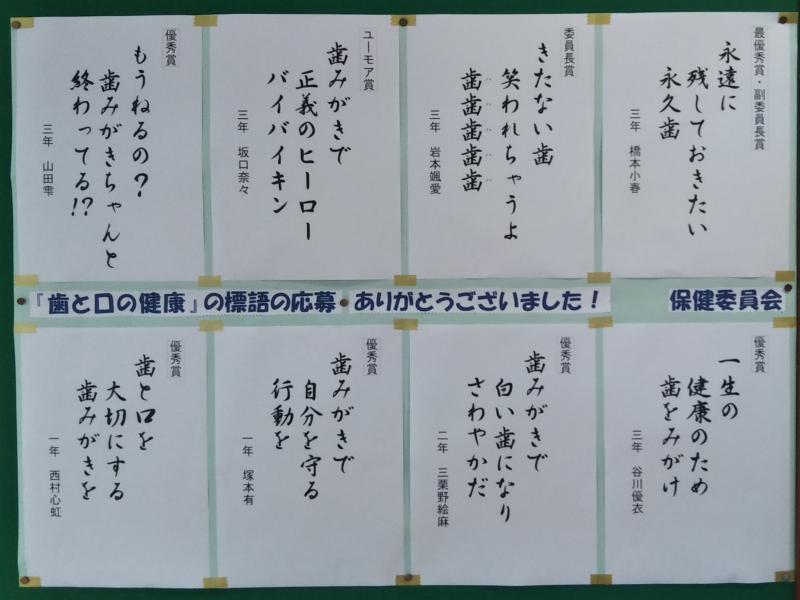 最優秀賞・副委員長賞
永遠に
残しておきたい
永久歯
三年　橋本小春
委員長賞
きたない歯
笑われちゃうよ
歯歯歯歯歯
三年　岩本颯愛
ユーモア賞
歯みがきで
正義のヒーロー
バイバイキン
三年　坂口奈々
優秀賞
もうねるの？
歯みがきちゃんと
終わってる!?
三年　山田雫
『歯と口の健康』の標語の応募　ありがとうございました！　保健委員会
優秀賞
一生の
健康のため
歯をみがけ
三年　谷川優衣
優秀賞
歯みがきで
白い歯になり
さわやかだ
二年　三栗野絵麻
優秀賞
歯みがきで
自分を守る
行動を
一年　塚本有
優秀賞
歯と口を
大切にする
歯みがきを
一年　西村心虹